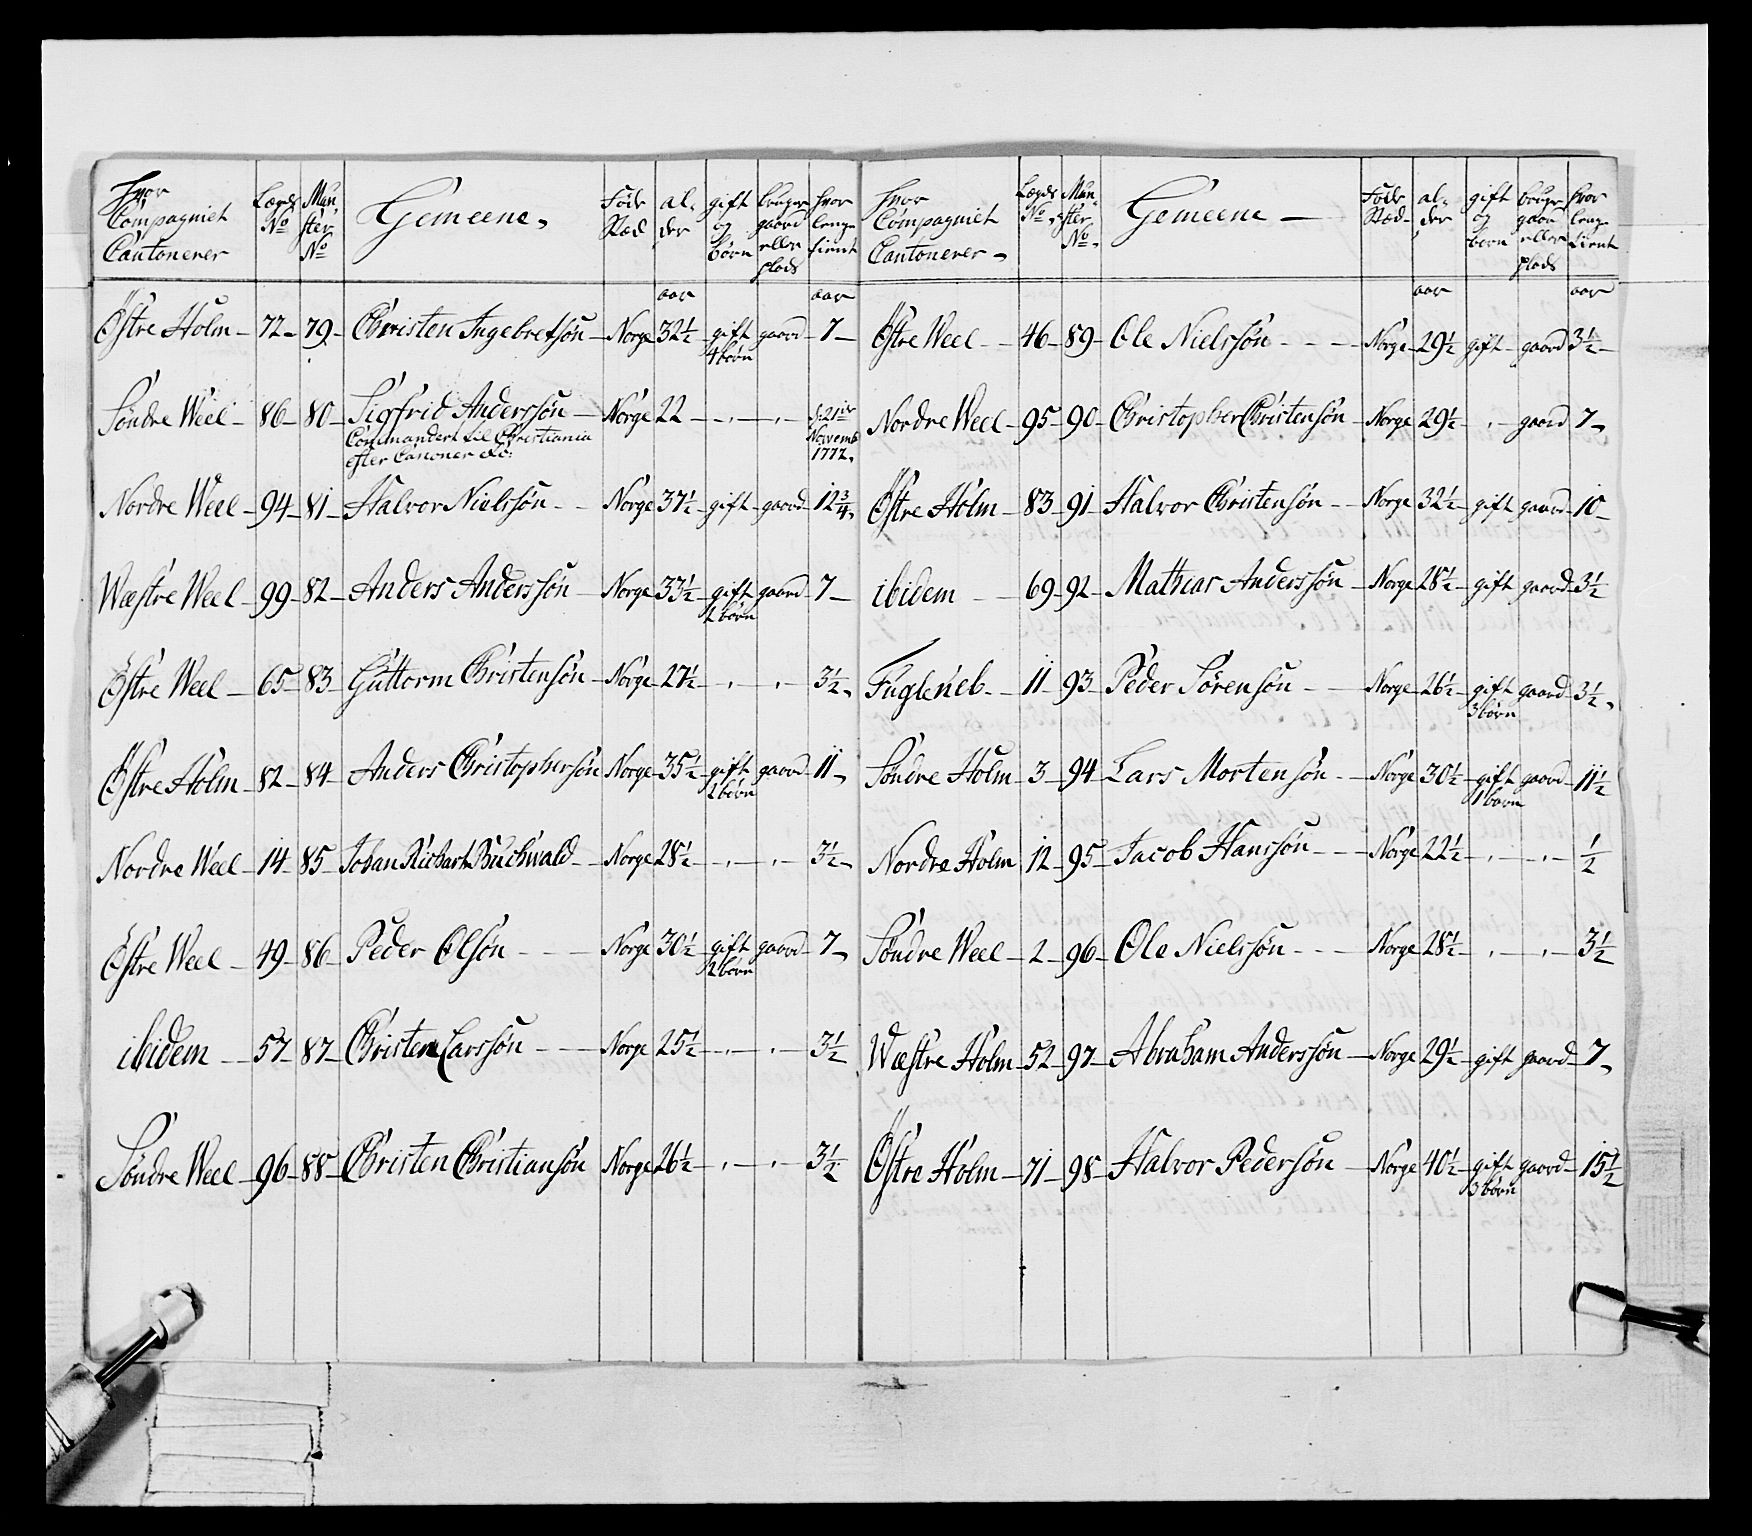 Hvor Compagniet Cantonerer | Lægds No | Mun ster No | Gemeene, | Føde Stæd | al- der | gift og børn | bruger gaard eller plads | hvor lenge tient
aar | aar
Östre Holm - 72 - 79 - Christen Ingebretsøn - Norge 32½ gift 4 børn gaard - 7 -
Söndre Weel - 86 - 80 - Sigfrid Anderssøn - Norge 22 - . - . - d: 21de Novemb 1772,
Commandert til Christiania
efter Canoner etc:
Nordre Weel - 94 - 81 - Halvor Nielssøn - - Norge 37½ - gift - gaard - 12¾,
Wæstre Weel - 99 - 82 - Anders Anderssøn - Norge 33½ gift 2 børn gaard - 7 -
Östre Weel - 65 - 83 - Guttorm Christensøn - Norge 27½ - . - . - 3½,
Östre Holm - 82 - 84 - Anders Christophersøn Norge 35½ gift 2 børn gaard - 11 -
Nordre Weel - 14 - 85 - Johan Richart Buchwald - Norge 28½ - . - . - 3½ -
Östre Weel - 49 - 86 - Peder Olsøn - - - Norge 30½ - gift 2 børn gaard - 7 -
ibidem - 57 - 87 - Christen Larssøn - - Norge 25½ - . - . - 3½
Söndre Weel - 96 - 88 - Christen Christiansøn Norge 26½ - . - . - 3½
Hvor Compagniet Cantonerer - | Lægds No | Mun- ster No. | Gemeene - | Føde Stæd - | al- der | gift og børn | bruger gaar eller plads | hvor lenge tient
aar | aar
Östre Weel - - 46 - 89 - Ole Nielssøn - - - Norge - 29½ gift - gaard 3½ -
Nordre Weel - 95 - 90 - Christopher Christensøn - Norge - 29½ - . - gaard - 7 -
Östre Holm - 83 - 91 - Halvor Christensøn - - Norge 32½ - gift - gaard - 10 -
ibidem - - 69 - 92 - Mathias Anderssøn - Norge 28½ - gift gaard - 3½
Fugleneb - - 11 - 93 - Peder Sørensøn - - Norge - 26½ - gift 3 børn gaard - 3½,
Söndre Holm - 3 - 94 - Lars Mortensøn - - Norge - 30½ - gift 1 barn gaard - 11½
Nordre Holm 12 - 95 - Jacob Hanssøn - - - Norge 22½ - . - . - ½
Söndre Weel - 2 - 96 - Ole Nielssøn - - - Norge 28½ - . - . - 3½
Wæstre Holm - 52 - 97 - Abraham Anderssøn - Norge 29½ - gift gaard - 7 -
Östre Holm - 71 - 98 - Halvor Pedersøn - Norge 40½ - gift 3 børn gaard - 15½